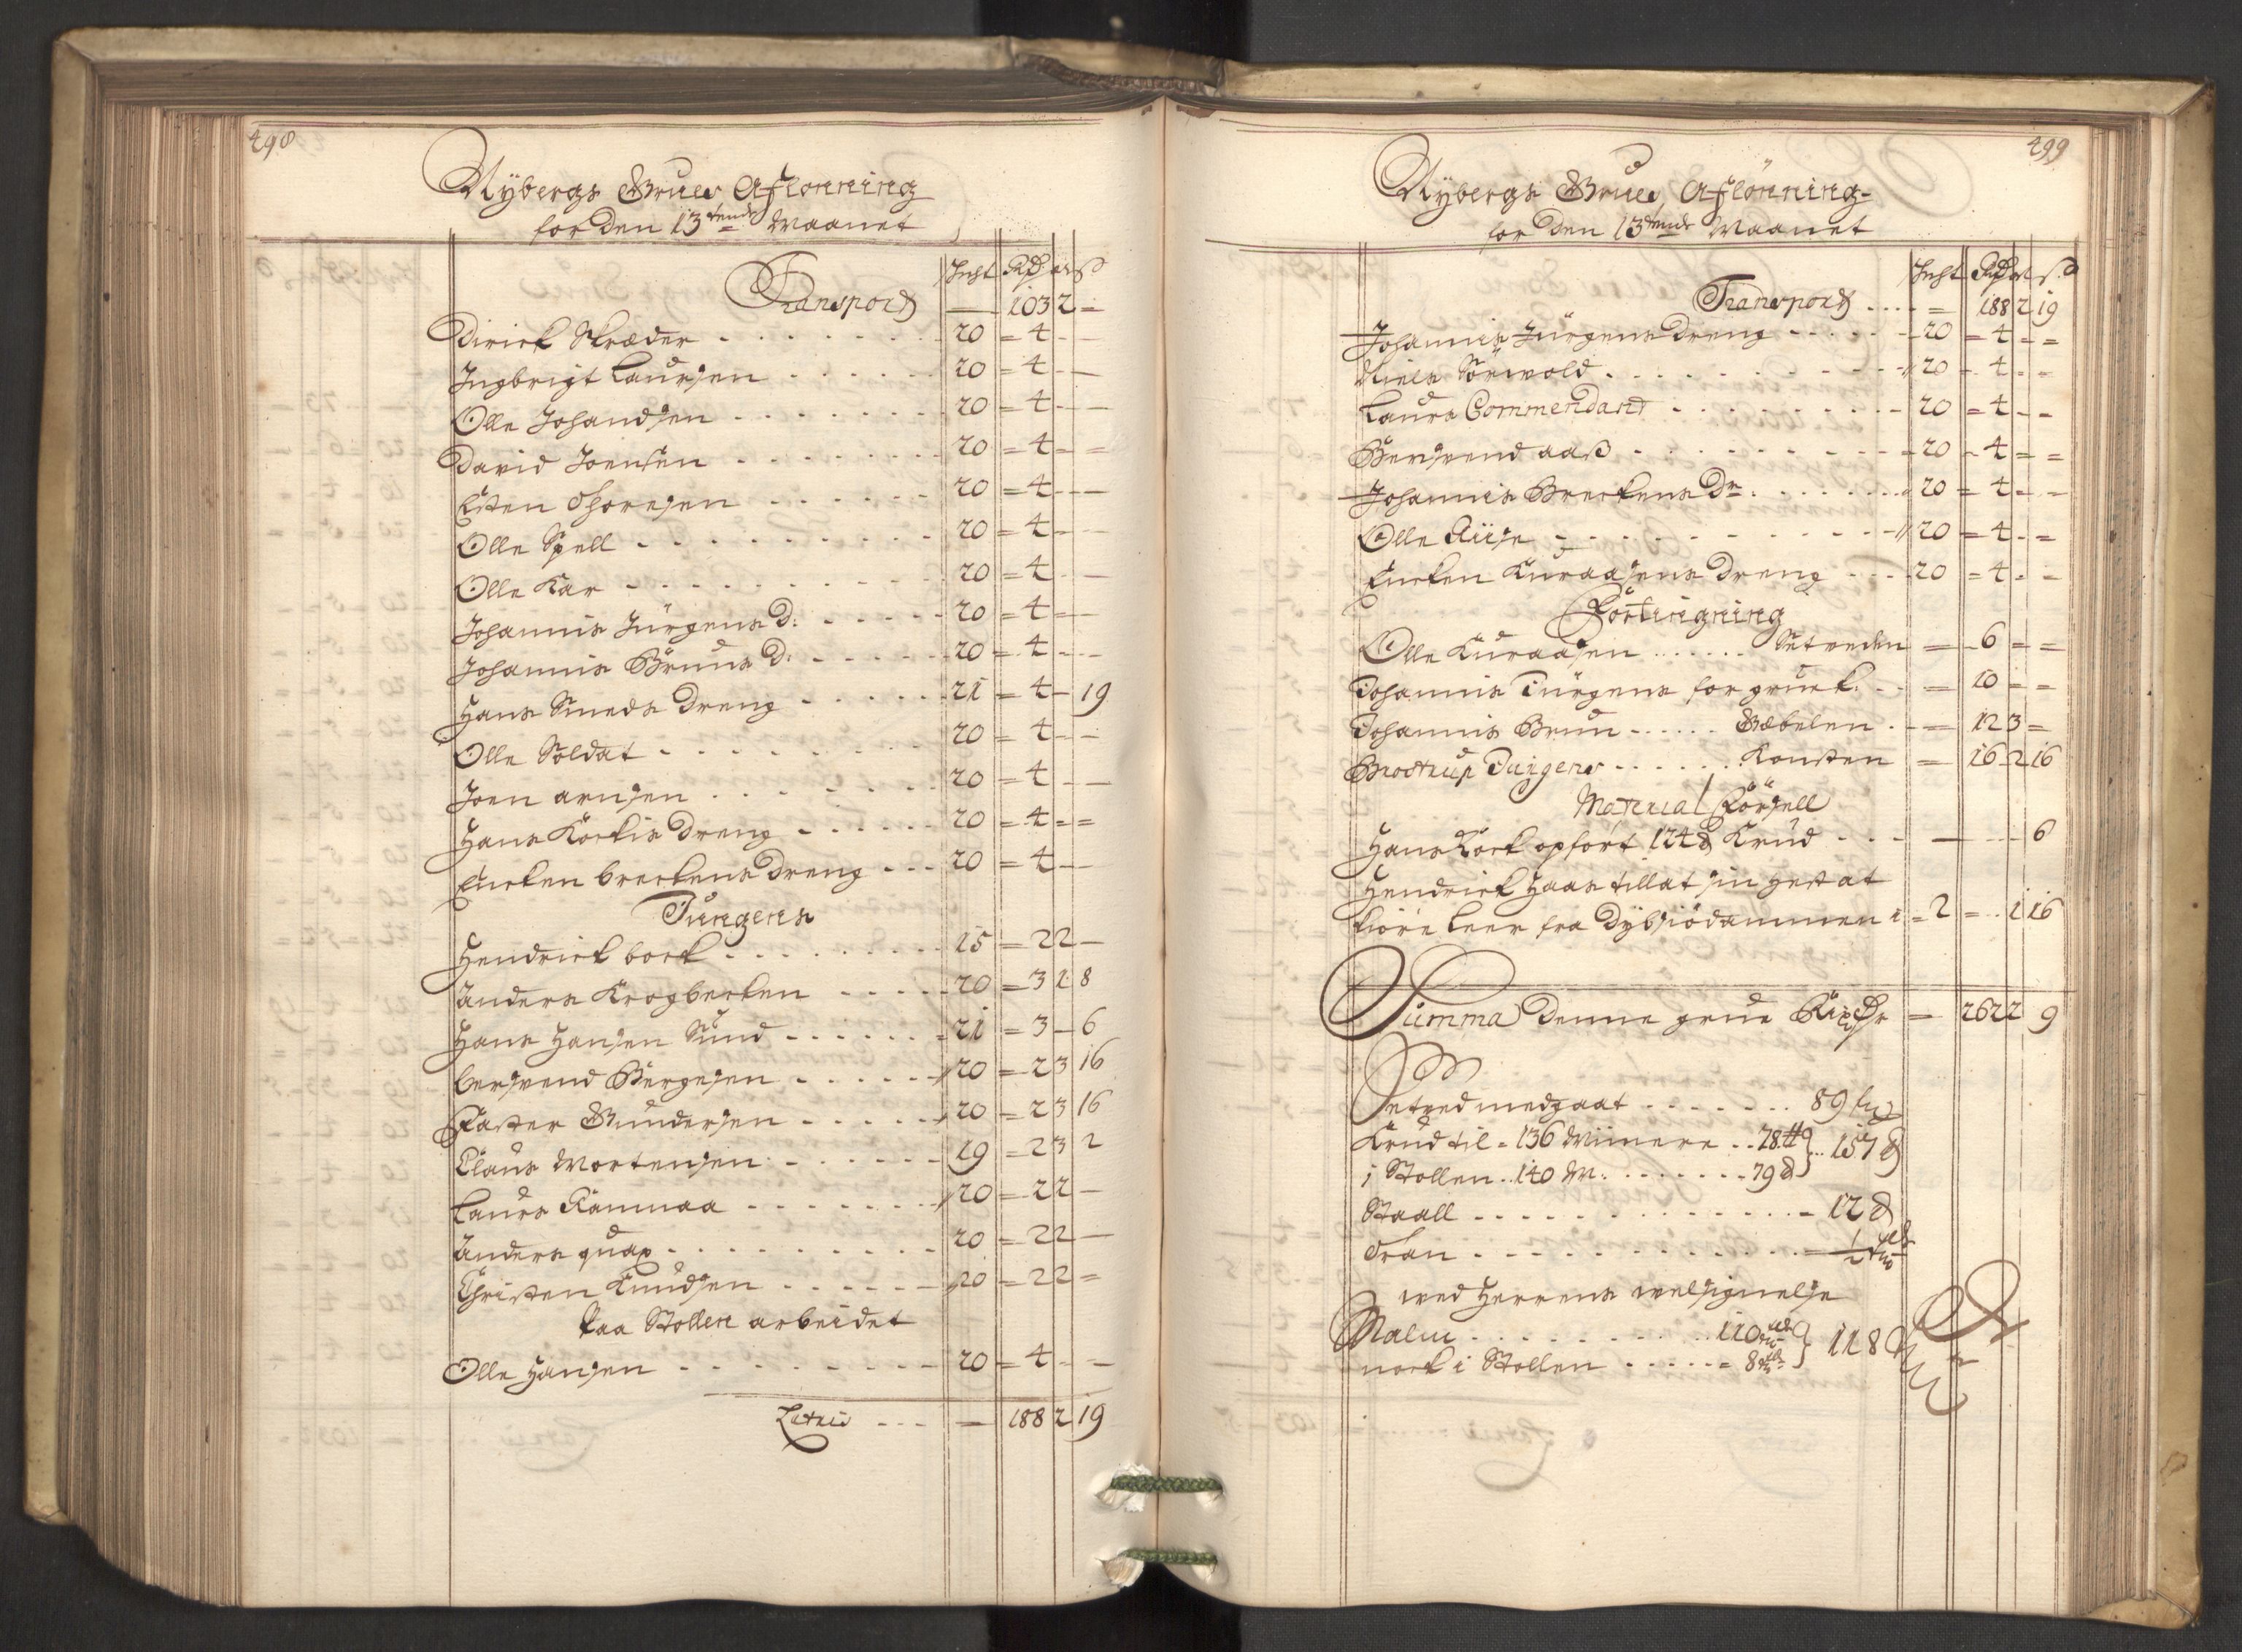 498
Nÿbergs Grues Aflonning
for den 13tende Maanet
Sicht Rdr ort ß
Transport — 103 2 =
Dirick Skræder - - - 20 = 4 - -
Ingbrigt Laursen - - - 20 = 4 - -
Olle Johandsen - - - 20 = 4 - -
David Joensen - - - 20 = 4 - =
Esten Thoresen - - - 20 = 4 - -
Olle Spell - - - 20 = 4 - -
Olle Kar - - - 20 = 4 - -
Johannis Jürgens d: - - - 20 = 4 - -
Johannis Bruns d: - - - 20 = 4 - -
Hans Smeds dreng - - - 21 = 4 - 19
Olle Soldat - - - 20 = 4 - -
Joen arnsen - - - 20 = 4 - -
Hans Körkis dreng - - - 20 = 4 = =
brekens dreng - - - 20 = 4 -
Jungens
Hendrick bock - - - 15 = 2 2 -
Anders Krogbecken - - - 20 = 3 1 8
Hans Hansen Sund - - - 21 = 3 - 6
bersvend Börgesen - - - 20 = 2 3 16
Gundersen - - - 20 = 2 3 16
Claus Mortensen - - - 19 = 2 3 2
Laurs Ramaa - - - 20 = 2 2 -
Anders quap - - - 20 = 2 2 -
Christen Knudsen - - - 20 = 2 2 =
Paa Stollen arbeidet
Olle Hansen - - - 20 = 4 - -
Lateris - - - = 188 2 19
499
Nÿbergs Grues Aflönning
for den 13tende Maanet
Sicht Rdr ort ß
Transport - - - = 188 2 19
Johannis Jürgens dreng - - - 20 = 4 - =
Niels Sörwold - - - 20 - 4 - =
Laurs Commendant - - - 20 = 4 - -
Bersvend aaß - - - 20 - 4 = =
Johannis Breckens Dr - - - 20 = 4 - -
Olle Riise - - - 20 = 4 - =
Kuraasens dreng - - - 20 = 4 - -
Fortingning
Olle Kuraasen - - - Setveden = 6 = =
Johannis Jürgens for gruck: - - = 10 = =
Johannis Brun - - - Gæbelen - = 12 3 =
Brostrup Duzgens - - - Konsten = 16 2 16
Material Försell
Hans Körk opfört 124 ℔ Krud - - - — - - 6
Hendrick Haas tillat sin hest at
kiöre leer fra Dÿbsiödammen i = 2 = - 1 16
Summa denne grue Rixdlr = 262 2 9
Setved medgaat - - - 89
Krud til = 136 Miinere - - 78 ℔ } - - 157 ℔
i Stollen - - 140 M: - - - 79 ℔
Staall - - - = 12 ℔
Tran - - - = 1/2
wed Herrens welsignelse
Malm - - - 110 } 118
nock i Stollen - - - = 8